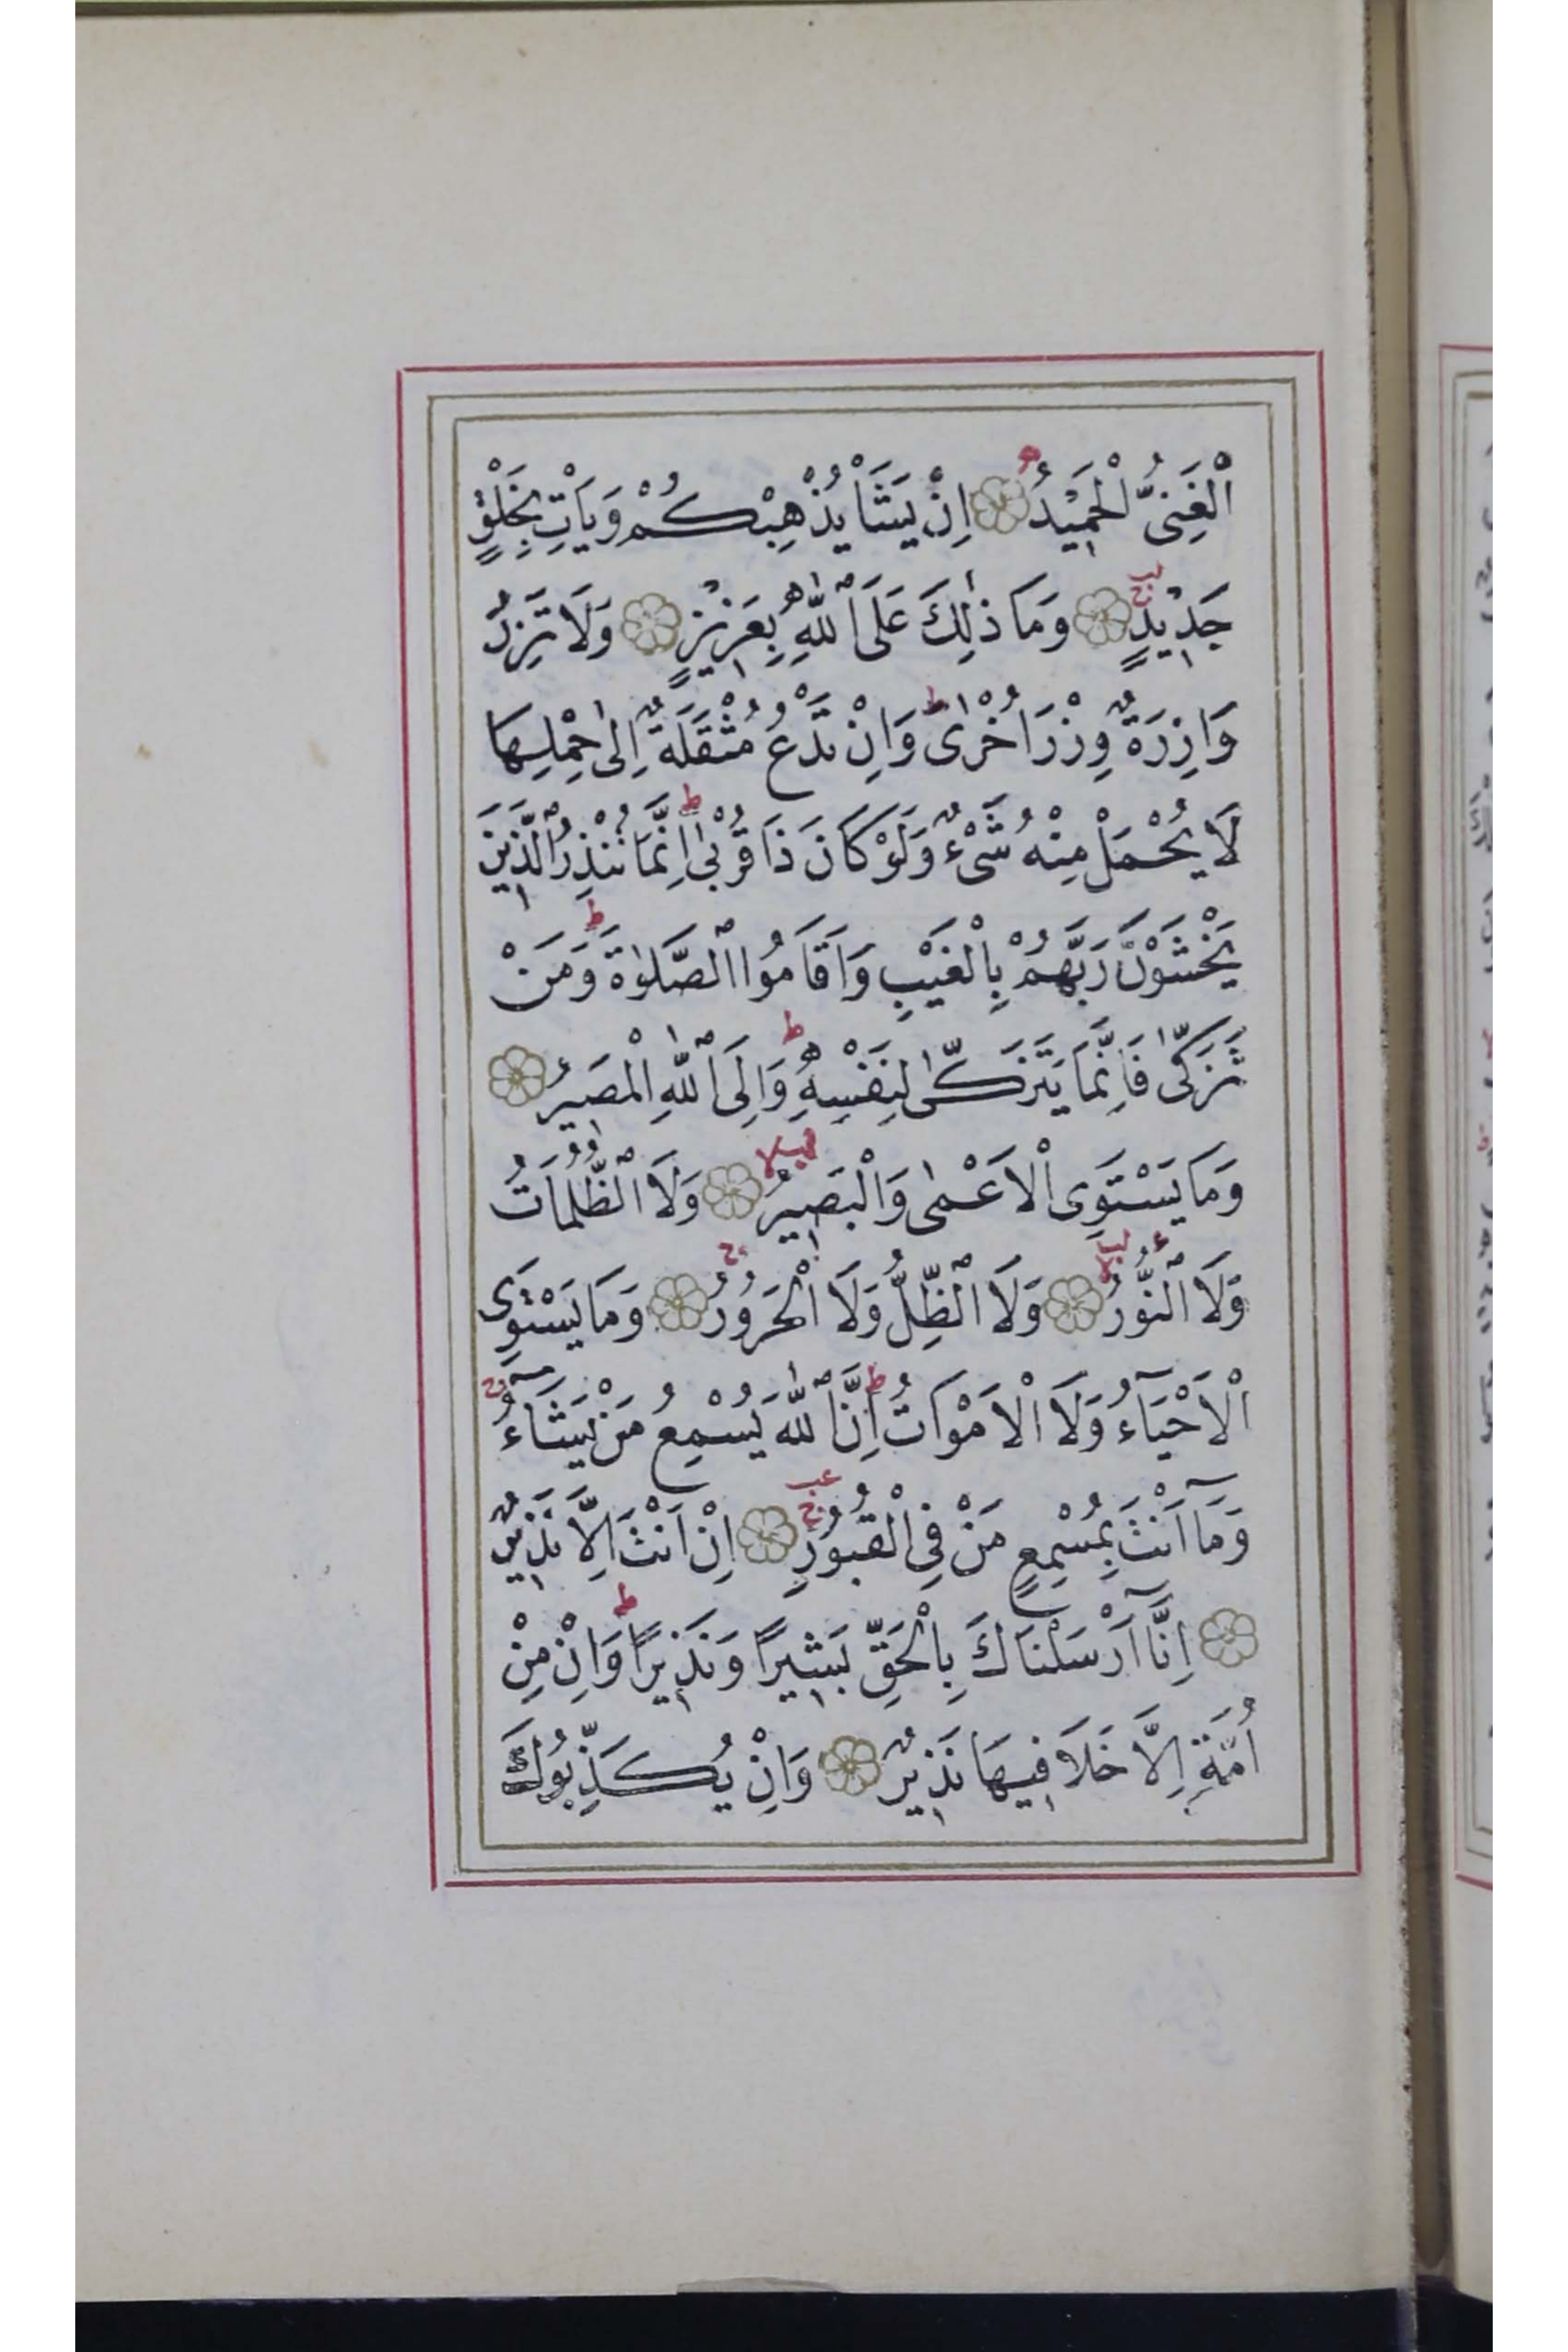 الْغَنِىُّ الْحَمِيْدُ اِنْ يَشَأْ يُذْهِبْكُمْ وَيَأْتِ بِخَلْقٍ
جَدِيْدٍ وَمَا ذٰلِكَ عَلَى اللّٰهِ بِعَزِيْزٍ وَلَا تَزِرُ
وَازِرَةٌ وِزْرَ اُخْرٰىؕ وَاِنْ تَدْعُ مُثْقَلَةٌ اِلٰى حِمْلِهَا
لَا يُحْمَلْ مِنْهُ شَىْءٌ وَلَوْ كَانَ ذَا قُرْبٰىؕ اِنَّمَا تُنْذِرُ الَّذِينَ
يَخْشَوْنَ رَبَّهُمْ بِالْغَيْبِ وَاَقَامُوا الصَّلٰوةَؕ وَمَنْ
تَزَكّٰى فَاِنَّمَا يَتَزَكّٰى لِنَفْسِهٖؕ وَاِلَى اللّٰهِ الْمَصِيرُ
وَمَا يَسْتَوِى الْاَعْمٰى وَالْبَصِيرُ وَلَا الظُّلُمَاتُ
وَلَا النُّورُ وَلَا الظِّلُّ وَلَا الْحَرُورُ وَمَا يَسْتَوِى
الْاَحْيَآءُ وَلَا الْاَمْوَاتُؕ اِنَّ اللّٰهَ يُسْمِعُ مَنْ يَشَآءُ
وَمَآ اَنْتَ بِمُسْمِعٍ مَنْ فِى الْقُبُورِ اِنْ اَنْتَ اِلَّا نَذِيرٌ
اِنَّآ اَرْسَلْنَاكَ بِالْحَقِّ بَشِيرًا وَنَذِيرًاؕ وَاِنْ مِنْ
اُمَّةٍ اِلَّا خَلَا فِيهَا نَذِيرٌ وَاِنْ يُكَذِّبُوكَ